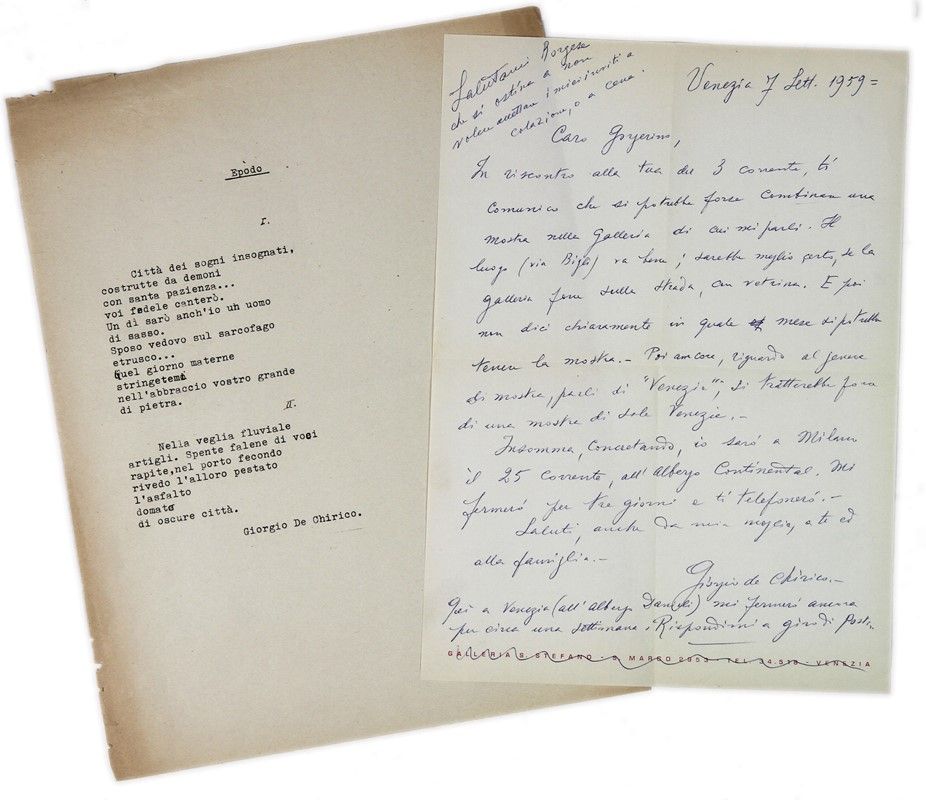 Epòdo
I.
Città dei sogni insognati,
costrutte da demoni
con santa pazienza...
voi fedele canterò.
Un dì sarò anch'io uh uomo
di sasso.
Sposo vedovo sul sarcofago
etrusco...
Quel giorno materne
stringetemi
nell'abbraccio vostro grande
di pietra.
II.
Nella veglia fluviale
artigli. Spente falene di voci
rapite,nel porto fecondo
rivedo l'alloro pestato
l'asfalto
domato
di oscure città.
Giorgio De Chirico.
Salutami Borgese
che si ostina a non
voler accettare i miei inviti a
colazione, o a cena.
Venezia 7 Sett. 1959=
Caro
In riscontro alla tua del 3 corrente, ti
comunico che si potrebbe forse combinare una
mostra nella Galleria di cui mi parli. Il
luogo (via Bigli) va bene; sarebbe meglio certo, se la
galleria fosse sulla strada, con vetrina. E poi
non dici chiaramente in quale mese si potrebbe
tenere la mostra.- Poi ancora, riguardo al genere
di mostra, parli di "Venezia"; si tratterebbe forse
di una mostra di sole Venezie.-
Insomma, concretando, io sarò a Milano
il 25 corrente, all'Albergo Continental. Mi
fermerò per tre giorni e ti telefonerò.-
Saluti, anche da mia moglie, a te ed
alla famiglia.-
Giorgio de Chirico.-
Qui a Venezia (all'Albergo Danieli) mi fermerò ancora
per circa una settimana. Rispondimi a giro di Posta.
GALLERIA S. STEFANO - S. MARCO 2953 - TEL. 34.518 - VENEZIA